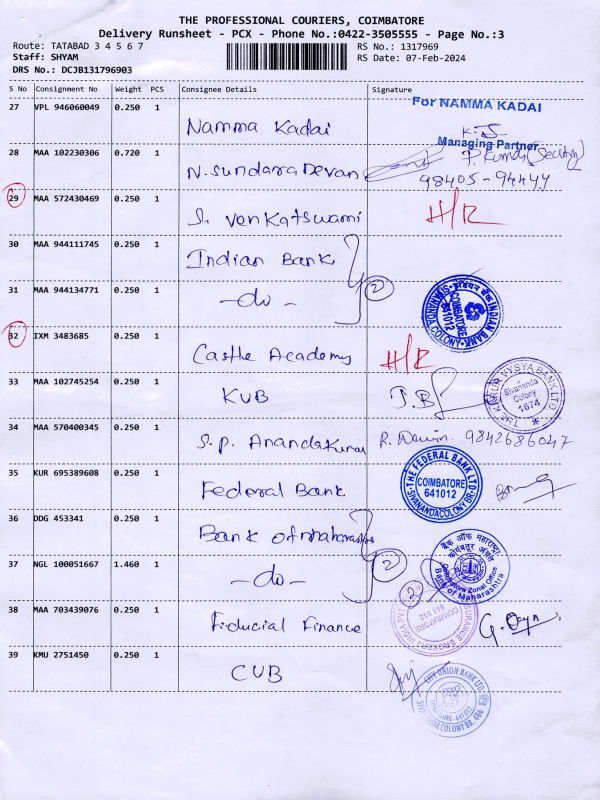 THE PROFESSIONAL COURIERS, COIMBATORE
Delivery Runsheet - PCX - Phone No.:0422-3505555 - Page No.:3
Route: TATABAD 3 4 5 6 7
RS No.: 1317969
Staff: SHYAM
RS Date: 07-Feb-2024
DRS No.: DCJB131796903
S No Consignment No Weight PCS Consignee Details Signature
27 VPL 946060049 0.250 1 Namma Kadai
For NAMMA KADAI
Managing Partner
28 MAA 102230306 0.720 1 N. Sundara Devan
98405-94444
29 MAA 572430469 0.250 1 S. Venkatswami H/R
30 MAA 944111745 0.250 1 Indian Bank
31 MAA 944134771 0.250 1 -do- 2
INDIAN BANK
SIVANANDA COLONY
COIMBATORE
641012
32 IXM 3483685 0.250 1 Castle Academy H/R
33 MAA 102745254 0.250 1 KVB J.B
THE KARUR VYSYA BANK LTD.
Sivananda
Colony
1674
34 MAA 570400345 0.250 1 S.P. Anandakumar R. 9842686047
35 KUR 695389608 0.250 1 Federal Bank
THE FEDERAL BANK LTD
COIMBATORE
641012
SIVANANDACOLONY BR
36 DDG 453341 0.250 1 Bank of Maharashtra
37 NGL 100051667 1.460 1 -do- 2
बैंक ऑफ महाराष्ट्र
Coimbatore Zonal Office
Bank of Maharashtra
38 MAA 703439076 0.250 1 Fiducial Finance 2
INSURANCE BROKERS INDIA PVT
COIMBATORE
641 012
39 KMU 2751450 0.250 1 CUB
CITY UNION BANK LTD.
SIVANANDA COLONY BR. 486